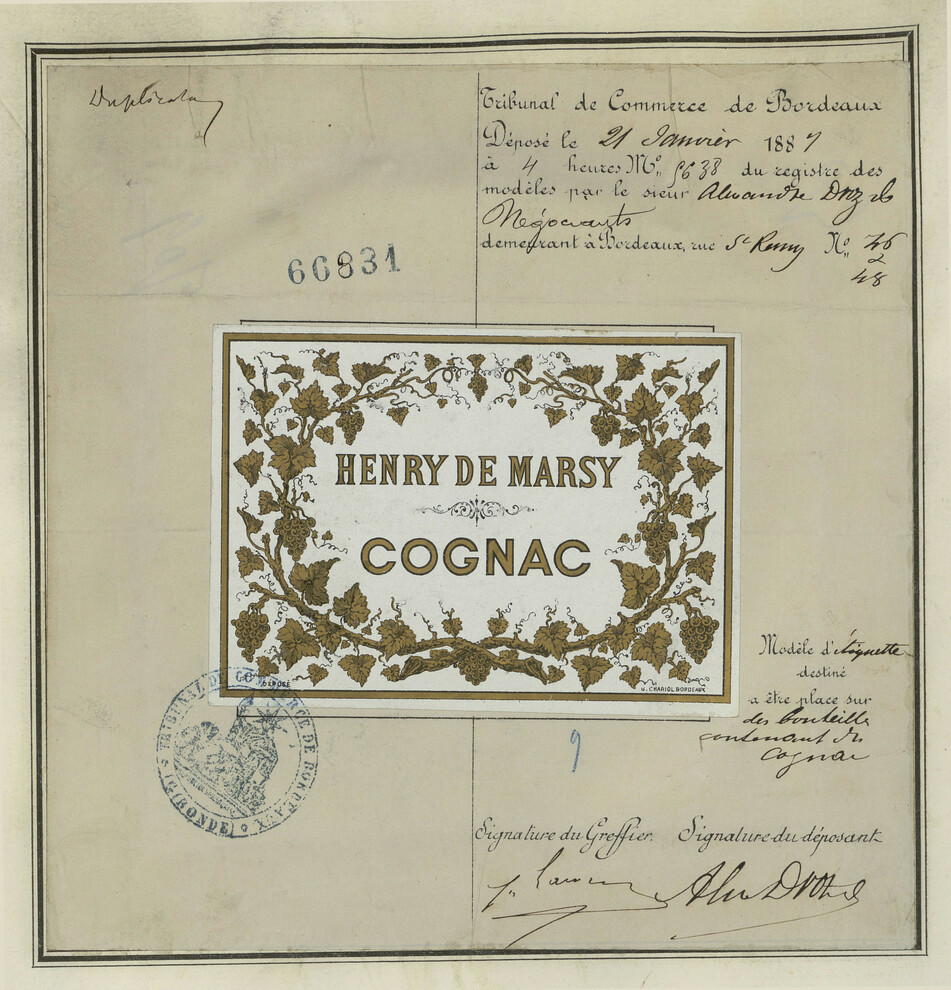 Duplicata
Tribunal de Commerce de Bordeaux
Déposé le 21 Janvier 1887
à 4 heures Nº 5638 du registre des
modèles par le sieur Alexandre Droz &
Négociants
demeurant à Bordeaux, rue St Remy Nº 46
48
66831
HENRY DE MARSY
COGNAC
DÉPOSÉ
G. CHARIOL BORDEAUX
Modèle d'étiquette
destiné
a être place sur
des bouteilles
contenant du
Cognac
TRIBUNAL DE COMMERCE DE BORDEAUX
(GIRONDE)
9
Signature du Greffier. Signature du déposant